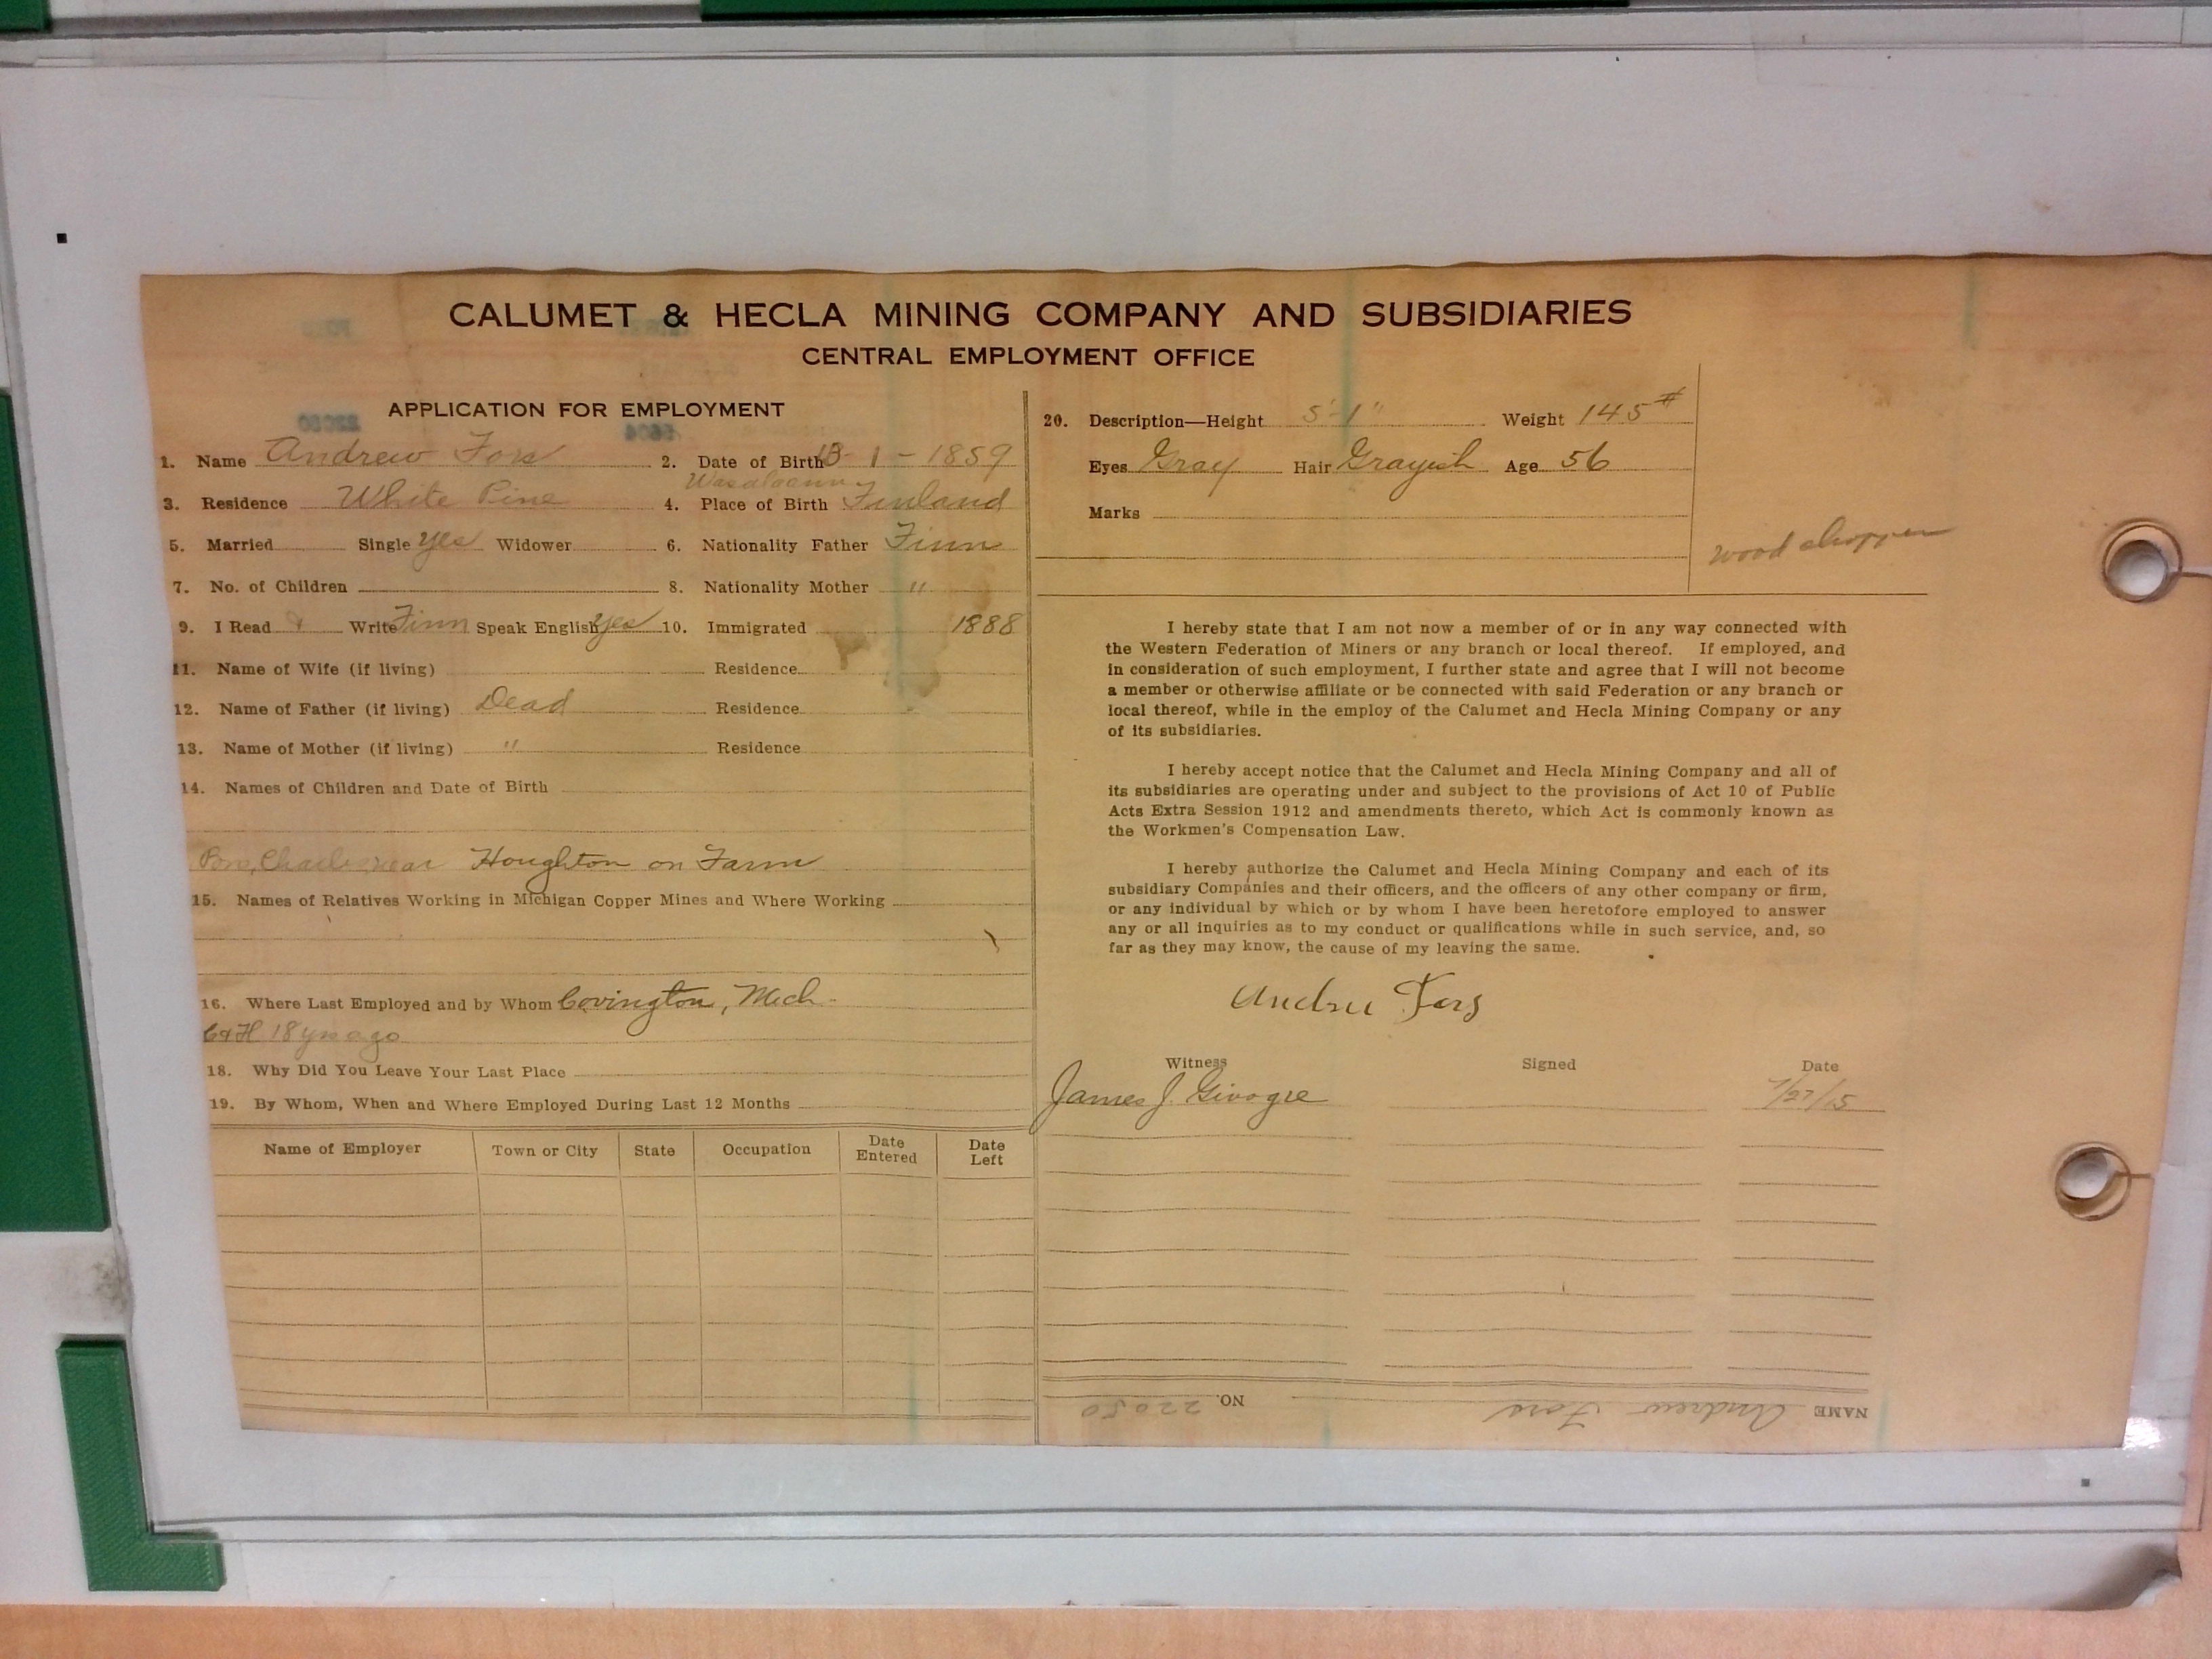 CALUMET & HECLA MINING COMPANY AND SUBSIDIARIES
CENTRAL EMPLOYMENT OFFICE
APPLICATION FOR EMPLOYMENT
1. Name Andrew Fors 2. Date of Birth 1 - 1859
3. Residence White Pine 4. Place of Birth Finland
5. Married Single yes Widower 6. Nationality Father Finn
7. No. of Children 8. Nationality Mother "
9. I Read & Write Finn Speak English yes 10. Immigrated 1888
11. Name of Wife (if living) Residence
12. Name of Father (if living) Dead Residence
13. Name of Mother (if living) " Residence
14. Names of Children and Date of Birth
Charlie near Houghton on Farm
15. Names of Relatives Working in Michigan Copper Mines and Where Working
16. Where Last Employed and by Whom Covington, Mich.
C&H 18 yrs ago
18. Why Did You Leave Your Last Place
19. By Whom, When and Where Employed During Last 12 Months
Name of Employer Town or City State Occupation Date Entered Date Left
20. Description—Height 5'-1" Weight 145#
Eyes Gray Hair Grayish Age 56
Marks
wood chopper
I hereby state that I am not now a member of or in any way connected with
the Western Federation of Miners or any branch or local thereof. If employed, and
in consideration of such employment, I further state and agree that I will not become
a member or otherwise affiliate or be connected with said Federation or any branch or
local thereof, while in the employ of the Calumet and Hecla Mining Company or any
of its subsidiaries.
I hereby accept notice that the Calumet and Hecla Mining Company and all of
its subsidiaries are operating under and subject to the provisions of Act 10 of Public
Acts Extra Session 1912 and amendments thereto, which Act is commonly known as
the Workmen's Compensation Law.
I hereby authorize the Calumet and Hecla Mining Company and each of its
subsidiary Companies and their officers, and the officers of any other company or firm,
or any individual by which or by whom I have been heretofore employed to answer
any or all inquiries as to my conduct or qualifications while in such service, and, so
far as they may know, the cause of my leaving the same.
Andru Fors
Witness Signed Date
James J. Givogre 7/27/15
NAME Andrew Fors NO. 22050